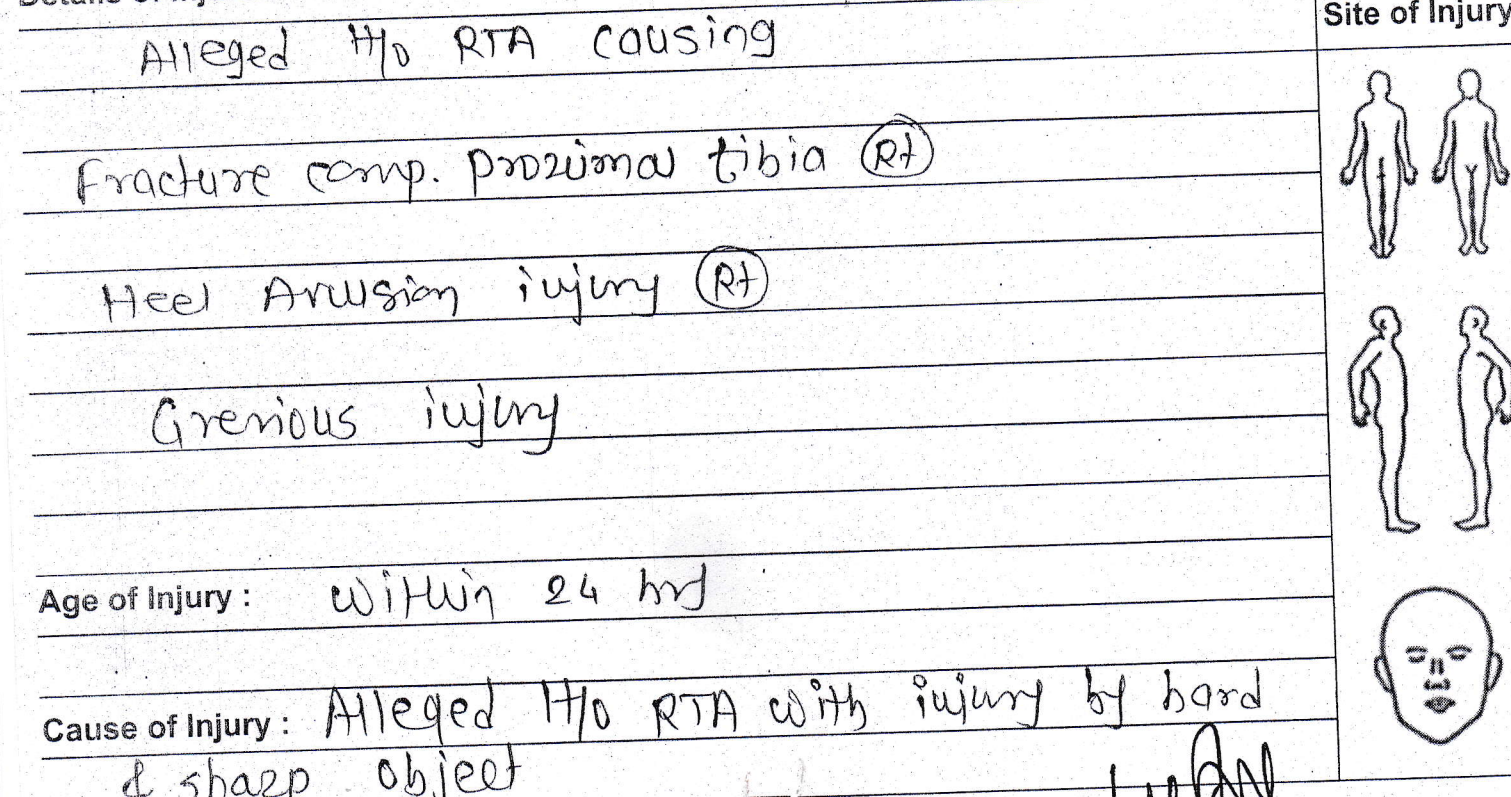 Site of Injury
Alleged H/o RTA causing
Fracture comp. proximal tibia (Rt)
Heel Avulsion injury (Rt)
Grevious injury
Age of Injury : Within 24 hrs
Cause of Injury : Alleged H/o RTA with injury by hard
& sharp object